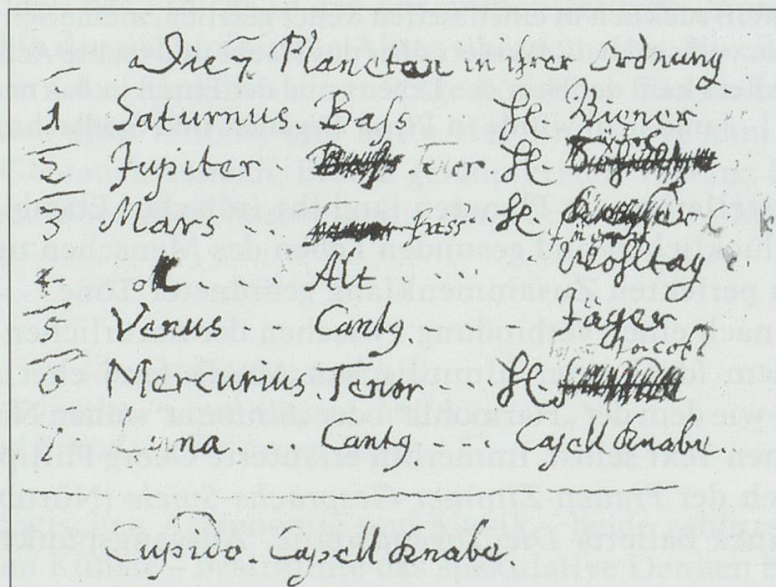 Die 7 Planeten in ihrer Ordnung
1 Saturnus. Bass H Biener
2 Jupiter Tenor H
3 Mars ... bass H
4 Alt ... Wohltag
5 Venus ... Cantq ... Jäger
6 Mercurius. Tenor .. H Jacobi
7 Luna ... Cantq .... Capell Knabe.
Cupido Capell Knabe.